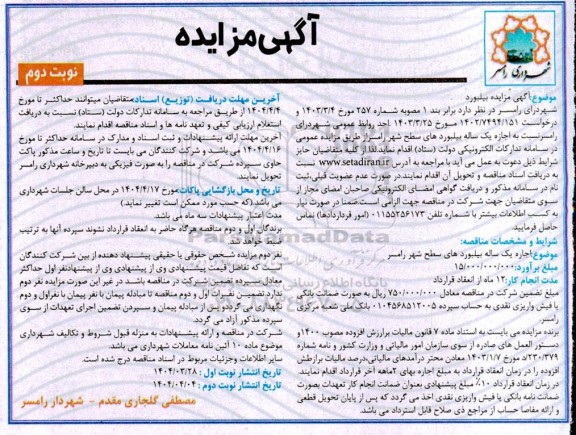 آگهی مزایده
نوبت دوم
شهرداری رامسر
موضوع: آگهی مزایده بیلبورد
شهرداری رامسر در نظر دارد برابر بند ۱ مصوبه شماره ۲۵۷ مورخ ۱۴۰۳/۳/۴ و
درخواست ۱۴۰۳/۷۴۹۴/۱۵۱ مورخ ۱۴۰۳/۳/۲۵ واحد روابط عمومی شهرداری
رامسر نسبت به اجاره یک ساله بیلبورد های سطح شهر رامسر از طریق مزایده عمومی
در سامانه تدارکات الکترونیکی دولت (ستاد) اقدام نماید لذا از کلیه متقاضیان حایز
شرایط ذیل دعوت به عمل می آید با مراجعه به آدرس www.setadiran.ir نسبت
به دریافت اسناد مناقصه و تحویل آن اقدام نمایند. در صورت عدم عضویت قبلی ثبت
نام در سامانه مذکور و دریافت گواهی امضای الکترونیکی صاحبان امضای مجاز از
سوی متقاضیان جهت شرکت در مناقصه جهت الزامی است. ضمنا در صورت نیاز
به کسب اطلاعات بیشتر با شماره تلفن ۰۱۱۵۵۲۵۶۱۷۳ (امور قراردادها) تماس
حاصل فرمایید
شرایط و مشخصات مناقصه:
موضوع: اجاره یک ساله بیلبورد های سطح شهر رامسر
مبلغ برآورد: ۱۵/۰۰۰/۰۰۰/۰۰۰
مدت انجام کار: ۱۲ ماه از انعقاد قرارداد
مبلغ تضمین شرکت در مناقصه معادل ۷۵۰/۰۰۰/۰۰۰ ریال به صورت ضمانت بانکی
یا فیش واریزی نقدی به حساب سپرده ۰۱۰۴۵۶۸۵۱۲۰۰۵ بانک ملی شعبه مرکزی
رامسر
برنده مزایده می بایست به استناد ماده ۷ قانون مالیات برارزش افزوده مصوب ۱۴۰۰ و
دستور العمل های صادره از سوی سازمان امور مالیاتی و وزارت کشور و نامه شماره
۲۳۰/۳۷۹/د مورخ ۱۴۰۳/۱/۷ معادن محتر درآمدهای مالیاتی، درصد مالیات برارزش
افزوده را در زمان انعقاد قرارداد به مبلغ اجاره بهای ۲ ماهه آخر قرارداد اقدام نمایند.
در زمان انعقاد قرارداد ۱۰٪ مبلغ پیشنهادی بعنوان ضمانت انجام کار تعهدات بصورت
ضمانت نامه بانکی یا فیش واریزی نقدی اخذ می گردد که پس از پایان تحویل قطعی
و ارائه مفاصا حساب از مراجع ذی صلاح قابل استرداد می باشد.
آخرین مهلت دریافت (توزیع) اسناد: متقاضیان میتوانند حداکثر تا مورخ
۱۴۰۴/۴/۴ از طریق مراجعه به سامانه تدارکات دولت (ستاد) نسبت به دریافت
استعلام ارزیابی کیفی و تعهد نامه ها و اسناد مناقصه اقدام نمایند.
آخرین مهلت ارائه پیشنهادات و ثبت اسناد و مدارک در سامانه حداکثر تا مورخ
۱۴۰۴/۴/۱۶ می باشد و شرکت کنندگان می بایست تا تاریخ و ساعت مذکور پاکت
حاوی سپرده شرکت در مناقصه را به صورت فیزیکی به دبیرخانه شهرداری رامسر
تحویل نمایند
تاریخ و محل بازگشایی پاکات: مورخ ۱۴۰۴/۴/۱۷ در محل سالن جلسات شهرداری
می باشد (که حسب مورد ممکن است تغییر نماید)
مدت اعتبار پیشنهادات سه ماه می باشد.
برندگان اول و دوم مناقصه هرگاه حاضر به انعقاد قرارداد نشوند سپرده آنها به ترتیب
ضبط خواهد شد
نفر دوم مزایده شخص حقوقی یا حقیقی پیشنهاد دهنده از بین شرکت کنندگان
است که تفاضل قیمت پیشنهادی وی از پیشنهادی وی از پیشنهاد نفر اول حداکثر
معادل سپرده تضمین شرکت در مناقصه باشد. در غیر این صورت مزایده نفر دوم
ندارد تضمین نفرات اول و دوم مناقصه تا مبادله پیمان با نفر پیمان با نفر اول و دوم
نگهداری می گردد پس از مبادله پیمان و سپردن تضمین اجرای تعهدات از سوی
سپرده مذکور آزاد می گردد.
شرکت در مناقصه و ارائه پیشنهادات به منزله قبول شروط و تکالیف شهرداری
موضوع ماده ۱۰ آئین نامه معاملات شهرداری می باشد.
سایر اطلاعات وجزئیات مربوط در اسناد مناقصه درج شده است.
تاریخ انتشار نوبت اول : ۱۴۰۴/۰۳/۲۸
تاریخ انتشار نوبت دوم : ۱۴۰۴/۰۴/۰۴
مصطفی گلجاری مقدم - شهردار رامسر